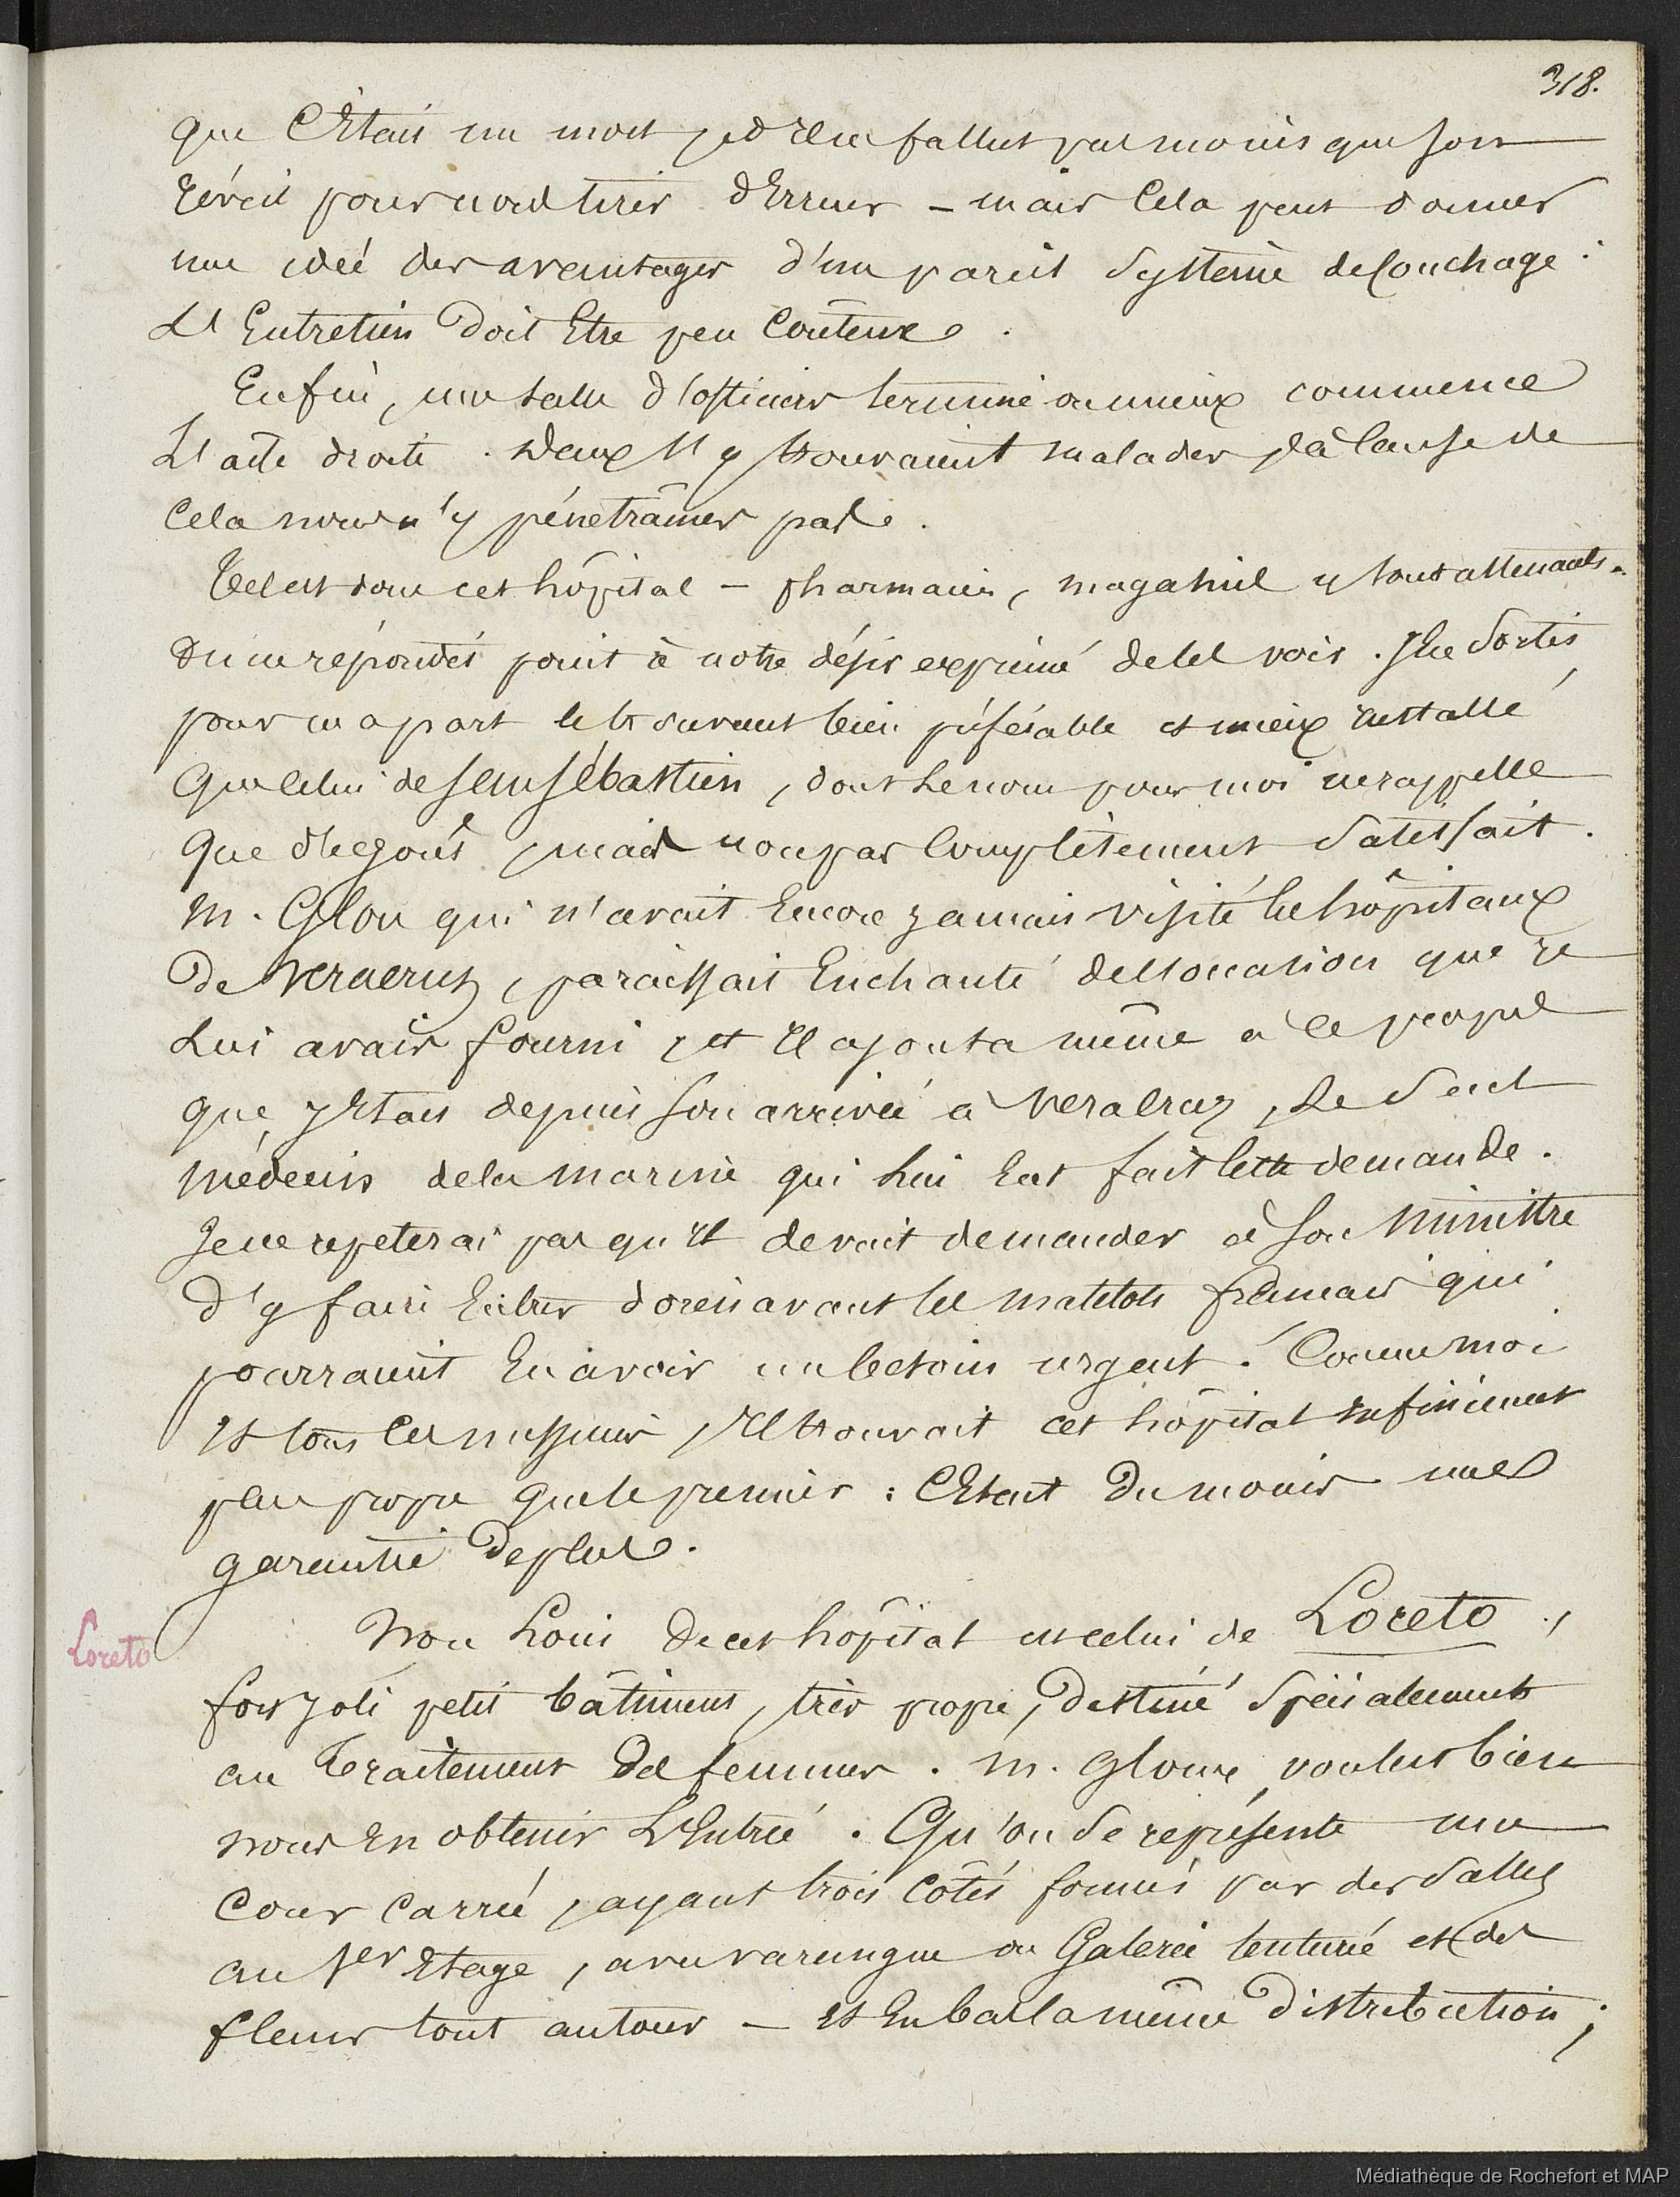 318.
que c'Etait un mort, et Il ne fallut pas moins que son
réveil pour nous tirer d'Erreur – mais Cela peut donner
une idée des avantages d'un pareil système de Couchage :
L'Entretien doit Etre peu Couteux.
Enfin, une salle d'officiers termine ou mieux commence
L'aile droite. Deux s'y trouvaient malades, à Cause de
Cela nous n'y pénétrâmes pas.
Tel est donc cet hôpital – pharmacie, magasins y sont attenants.
On ne répondit point à notre désir exprimé de les voir. Je sortis,
pour ma part le trouvant bien préférable et mieux installé
que Celui de San Sébastien, dont le nom pour moi ne rappelle
que dégoût, mais non pas Complètement satisfait.
M. Glou qui n'avait Encore jamais visité les hôpitaux
de Veracruz, paraissait Enchanté de l'occasion que je
Lui avais fourni, et Il ajouta même à ce propos
que j'Etais depuis son arrivée à Veracruz, Le seul
médecin de la marine qui Lui Eut fait cette demande.
Je ne repeterai pas qu'Il devait demander à son Ministre
d'y faire Entrer dorénavant les matelots français qui
pourraient En avoir un besoin urgent. Comme moi
Et tous Ces messieurs, Il trouvait cet hôpital infiniment
plus propre que le premier : C'Etait du moins une
garantie de plus.
Loreto
Non Loin de cet hôpital est celui de Loreto,
fort joli petit bâtiment, très propre, destiné spécialement
au Traitement des femmes. M. Gloux voulut bien
nous En obtenir L'Entrée. Qu'on se représente une
Cour Carrée, ayant trois Côtés formés par des salles
au 1er Etage, avec varangue ou Galerie et des
fleurs tout autour – Et En bas la même distribution ;
Médiathèque de Rochefort et MAP